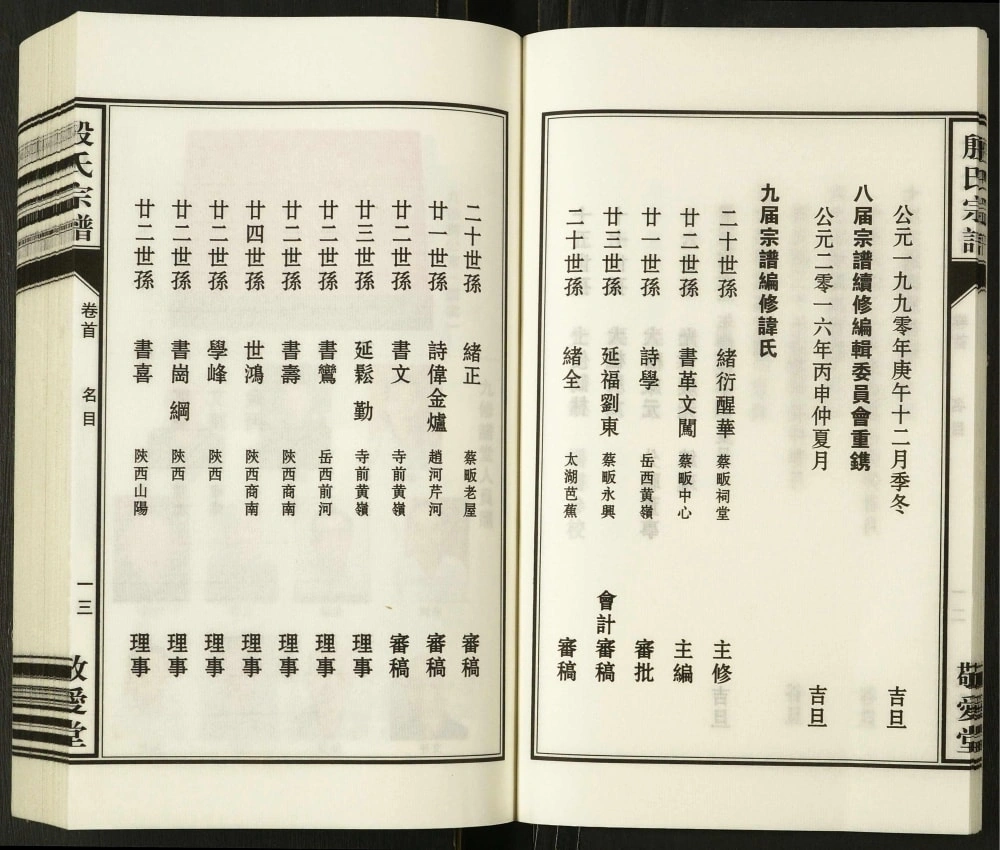 公元一九九零年庚午十二月季冬 吉旦
八届宗譜續修編輯委員會重鐫
公元二零一六年丙申仲夏月 吉旦
九届宗譜編修諱氏
二十世孫 緒衍醒華 蔡畈祠堂 主修
廿二世孫 書革文闖 蔡畈中心 主編
廿一世孫 詩學 岳西黄嶺 審批
廿三世孫 延福劉東 蔡畈永興 會計審稿
二十世孫 緒全 太湖芭蕉 審稿
二十世孫 緒正 蔡畈老屋 審稿
廿一世孫 詩偉金爐 趙河芹河 審稿
廿二世孫 書文 寺前黄嶺 審稿
廿三世孫 延鬆 勤 寺前黄嶺 理事
廿二世孫 書鸞 岳西前河 理事
廿二世孫 書壽 陝西商南 理事
廿四世孫 世鴻 陝西商南 理事
廿二世孫 學峰 陝西 理事
廿二世孫 書崗 綱 陝西 理事
廿二世孫 書喜 陝西山陽 理事
氏宗譜
卷首 名目
一三
敬愛堂